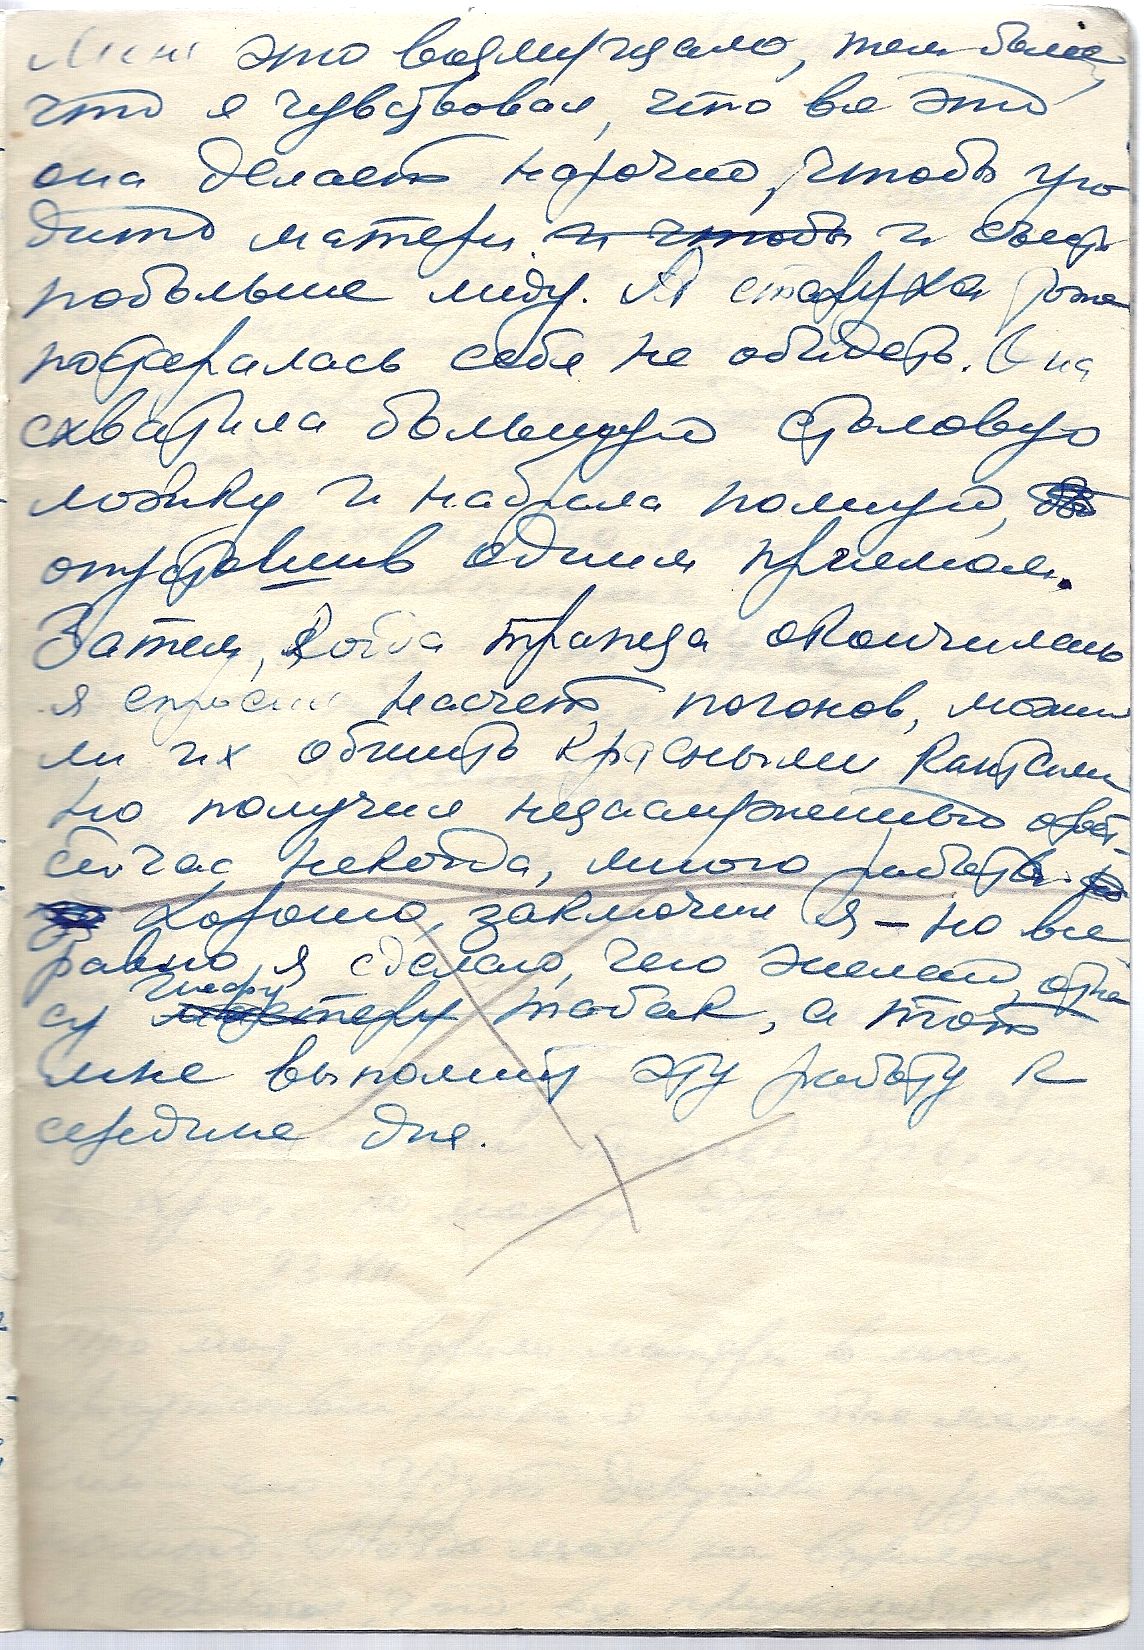 Меня это возмущало, тем более,
что я чувствовал, что вся это
она делает нарочно, чтобы уго
дить матери и чтобы и съесть
побольше меду. А старуха тоже
постаралась себя не обидеть. Она
схватила большую столовую
ложку и набрала полную,
опустошив одним приемом.
Затем, когда трапеза окончилась
я спросил насчет погонов, можно
ли их обшить красными кантами
но получил незаслуженный ответ-
сейчас некогда, много работы.
Хорошо, заключил я – но все
равно я сделаю, чего желаю, отне
су шефу мастеру табак, а тот
мне выполнит эту работу к
середине дня.